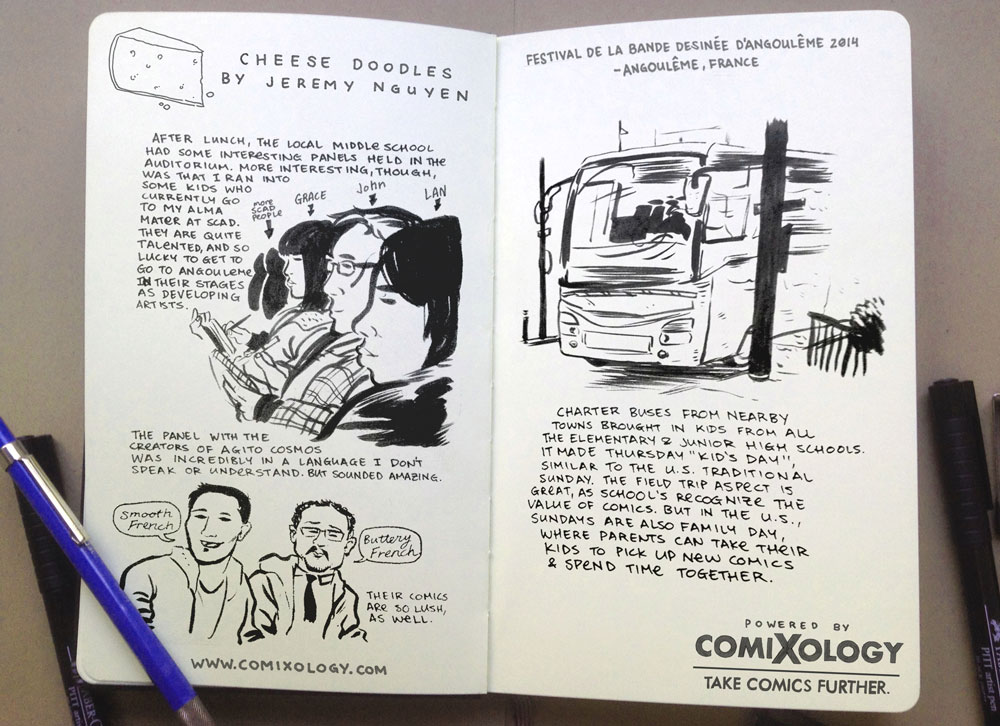 CHEESE DOODLES
BY JEREMY NGUYEN
AFTER LUNCH, THE LOCAL MIDDLE SCHOOL
HAD SOME INTERESTING PANELS HELD IN THE
AUDITORIUM. MORE INTERESTING, THOUGH,
WAS THAT I RAN INTO
SOME KIDS WHO
CURRENTLY GO
TO MY ALMA
MATER AT SCAD.
THEY ARE QUITE
TALENTED, AND SO
LUCKY TO GET TO
GO TO ANGOULEME
IN THEIR STAGES
AS DEVELOPING
ARTISTS.
more
SCAD
PEOPLE
GRACE
John
LAN
THE PANEL WITH THE
CREATORS OF AGITO COSMOS
WAS INCREDIBLY IN A LANGUAGE I DON'T
SPEAK OR UNDERSTAND. BUT SOUNDED AMAZING.
Smooth
French
Buttery
French
THEIR COMICS
ARE SO LUSH,
AS WELL.
WWW.COMIXOLOGY.COM
FESTIVAL DE LA BANDE DESINÉE D'ANGOULÊME 2014
-ANGOULÊME, FRANCE
CHARTER BUSES FROM NEARBY
TOWNS BROUGHT IN KIDS FROM ALL
THE ELEMENTARY & JUNIOR HIGH SCHOOLS.
IT MADE THURSDAY "KID'S DAY",
SIMILAR TO THE U.S. TRADITIONAL
SUNDAY. THE FIELD TRIP ASPECT IS
GREAT, AS SCHOOL'S RECOGNIZE THE
VALUE OF COMICS. BUT IN THE U.S.,
SUNDAYS ARE ALSO FAMILY DAY,
WHERE PARENTS CAN TAKE THEIR
KIDS TO PICK UP NEW COMICS
& SPEND TIME TOGETHER.
POWERED BY
COMIXOLOGY
TAKE COMICS FURTHER.
PITT artist pen